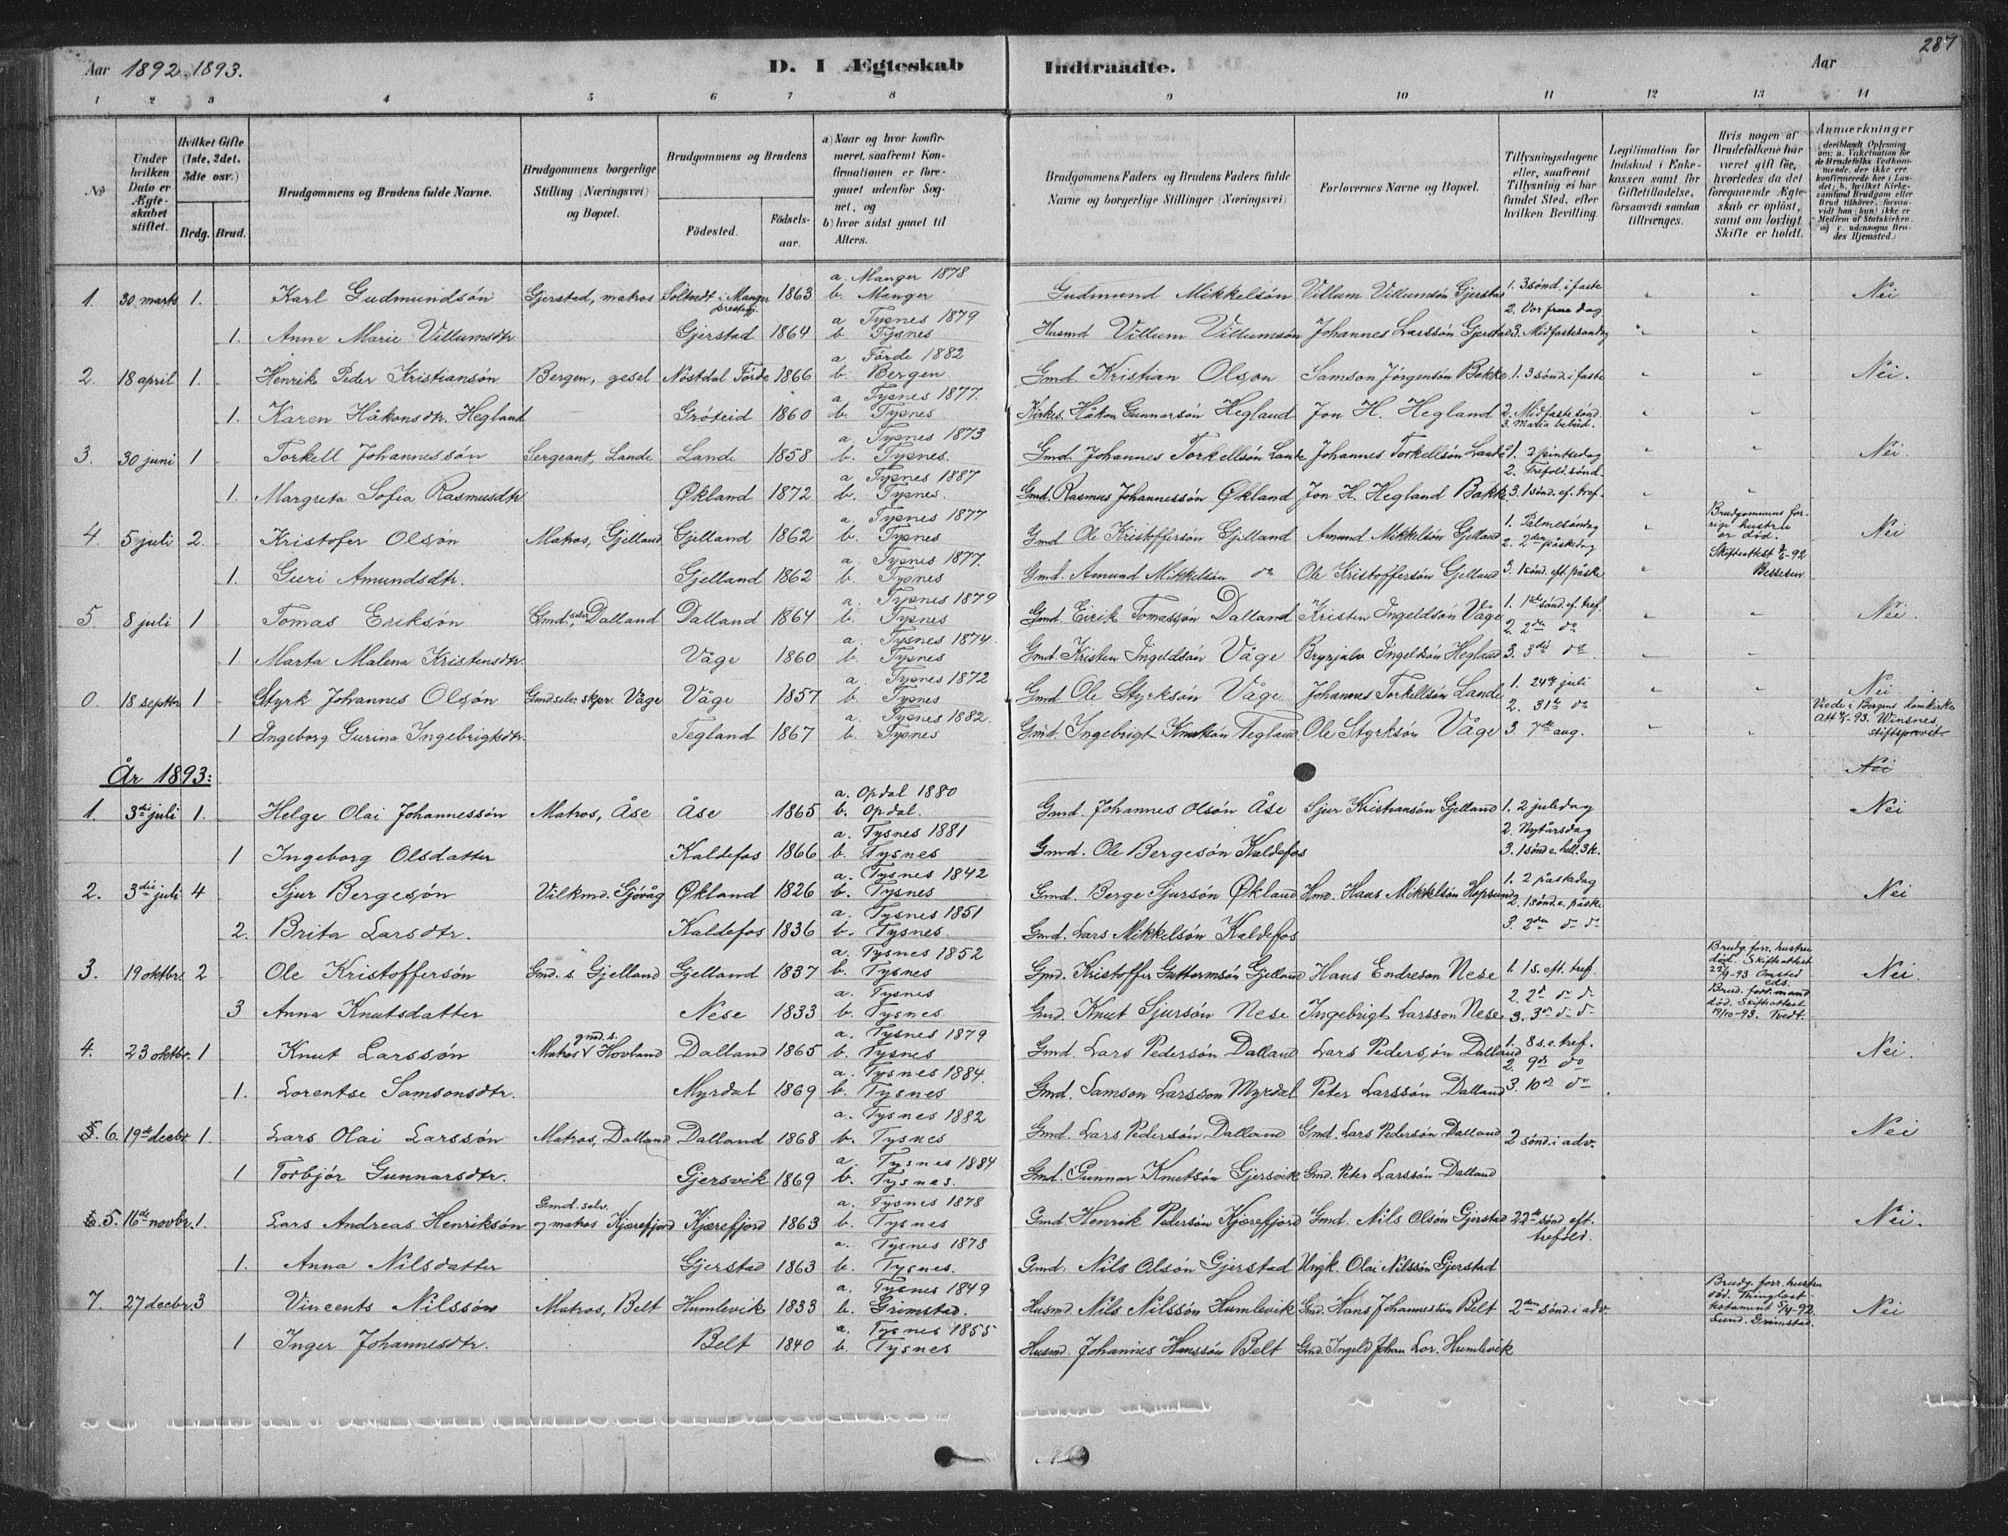 287
Aar 1892. 1893. D. I Ægteskab Indtraadte. Aar
1 2 3 4 5 6 7 8 9 10 11 12 13 14
No
Under hvilken Dato er Ægteskabet stiftet.
Hvilket Gifte (1ste, 2det, 3die osv.)
Brdg. Brud.
Brudgommens og Brudens fulde Navne.
Brudgommens borgerlige Stilling (Næringsvei) og Bopæl.
Brudgommens og Brudens
Fødested. Fødselsaar.
a) Naar og hvor konfirmeret, saafremt Konfirmationen er foregaaet udenfor Sognet, og
b) hvor sidst gaaet til Alters.
Brudgommens Faders og Brudens Faders fulde Navne og borgerlige Stillinger (Næringsvei)
Forlovernes Navne og Bopæl.
Tillysningsdagene eller, saafremt Tillysning ei har fundet Sted, efter hvilken Bevilling.
Legitimation for Indskud i Enkekassen samt for Giftetilladelse, forsaavidt saadan tiltrænges.
Hvis nogen af Brudefolkene har været gift før, hvorledes da det foregaaende Ægteskab er opløst, samt om lovligt Skifte er holdt.
Anmærkninger (deriblandt Oplysning om: a. Vakcination for de Brudefolks Vedkommende, der ikke ere konfirmerede her i Landet; b. hvilket Kirkesamfund Brudgom eller Brud tilhører, forsaavidt han (hun) ikke er Medlem af Statskirken, og c. udensogns Brudes Hjemsted.)
1. 30 marts 1. Karl Gudmundsön Gjerstad, matros Soltvedt i Manger prestegj. 1863 a. Manger 1878 b. Manger Gudmund Mikkelsön Villum Villumsön Gjerstad 1. 3 sönd. i faste 2. Vor frue dag Nei
1. Anne Marie Villumsdtr. Gjerstad 1864 a Tysnes 1879 b. Tysnes Husmd Villum Villumsön Johannes Larssön Gjerstad 3. Midfastesöndag
2. 18 april 1. Henrik Peder Kristiansön Bergen, gesel Nöstdal Förde 1866 a. Förde 1882 b. Bergen. Gmd. Kristian Olson Samson Jörgensön Bakke 1. 3 sönd. i faste Nei.
1. Karen Håkonsdtr. Hegland Gröteid 1860 a. Tysnes 1877. b. Tysnes. Kirkes. Håkon Gunnarsön Hegland Jon H. Hegland 2. Midfaste sönd. 3. Maria bebud.
3. 30 juni 1 Torkell Johannessön Sergeant, Lande Lande 1858 a. Tysnes 1873 b. Tysnes. Gmd. Johannes Torkellsön Lande Johannes Torkellsön Lande 1. 2 pintsedag 2. Trefold. sönd. Nei.
1. Margreta Sofia Rasmusdtr Økland 1872 a Tysnes 1887 b. Tysnes. Gmd. Rasmus Johannessön Økland Jon H. Hegland Bakke 3. 1 sönd. ef. tref.
4. 5 juli 2. Kristofer Olsön Matros, Gjelland Gjelland 1862 a. Tysnes 1877 b. Tysnes Gmd Ole Kristoffersön Gjelland Amund Mikkelsön Gjelland 1. Palmesöndag 2. 2den påskedag Brudgommens forrige hustru er död. Skifteattest 3/6-92 Nei
1. Guri Amundsdtr. Gjelland 1862 a. Tysnes 1877. b. Tysnes Gmd. Amund Mikkelsön do Ole Kristoffersön Gjelland 3. 1 sönd. eft. påske
5. 8 juli 1 Tomas Eriksön Gmd., Dalland Dalland 1864 a. Tysnes 1879 b. Tysnes Gmd. Eirik Tomassön Dalland Kristen Ingeldsön Våge 1. 1ste sönd. ef. tref. 2. 2den do Nei.
1. Marta Malena Kristensdtr. Våge 1860 a. Tysnes 1874. b. Tysnes Gmd. Kristen Ingeldsön Våge Brynjulv Ingeldsön Hegland 3. 3die do
0. 18 septbr 1 Styrk Johannes Olsön Gmdselv. skpr. Våge Våge 1857 a. Tysnes 1872 b. Tysnes Gmd Ole Styrksön Våge Johannes Torkellsön Lande 1. 24de juli 2. 31te do Nei.
1 Ingeborg Gurina Ingebrigtsdtr. Tegland 1867 a. Tysnes 1882. b. Tysnes Gmd. Ingebrigt Knutsön Tegland Ole Styrksön Våge 3. 7de aug. Viede i Bergens domkirke Att. 4/1-93. Winsnes, stiftsprovst
År 1893: Nei
1. 3die juli 1. Helge Olai Johannessön Matros, Åse Åse 1865 a. Opdal 1880 b. Opdal. Gmd. Johannes Olsön Åse Sjur Kristiansön Gjelland 1. 2 juledag 2. Nytårsdag Nei
1 Ingeborg Olsdatter Kaldefos 1866 a. Tysnes 1881 b. Tysnes Gmd. Ole Bergesön Kaldefos 3. 1 sönd e. hell. 3 k.
2. 3die juli 4 Sjur Bergesön Vilkmd. Gjövåg Økland 1826 a. Tysnes 1842 b. Tysnes Gmd. Berge Sjursön Økland Hmd. Hans Mikkelsön Hopsund 1. 2 påskedag 2. 1 sönd e. påske Nei
2. Brita Larsdtr. Kaldefos 1836 a. Tysnes 1851 b. Tysnes Gmd. Lars Mikkelsön Kaldefos 3. 2den do do
3. 19 oktbr. 2 Ole Kristoffersön Gmd. s. Gjelland Gjelland 1837 a. Tysnes 1852 b. Tysnes Gmd. Kristoffer Guttormsön Gjelland Hans Endreson Nese 1. 1 s. eft. tref. Brudg. forr. hustru död. Skifteattest 22/9-93 Omsted Nei.
3 Anna Knutsdatter Nese 1833 a. Tysnes b. Tysnes. Gmd Knut Sjursön Nese Ingebrigt Larsson Nese 2. 2d do do 3. 3de do do Brud. forr. mand död. Skifteattest 17/10-93. Tvedt.
4. 23 oktbr. 1 Knut Larssön Matros Hovland gmd. s. Dalland 1865 a. Tysnes 1879 b. Tysnes Gmd. Lars Pedersön Dalland Lars Pedersön Dalland 1. 8 s. e. tref. 2. 9de do Nei.
1. Lorentse Samsonsdtr. Myrdal 1869 a. Tysnes 1884. b. Tysnes Gmd. Samson Larsson Myrdal Peter Larssön Dalland 3. 10de do
5. 6. 19de decbr. 1. Lars Olai Larssön Matros, Dalland Dalland 1868 a. Tysnes 1882 b. Tysnes Gmd. Lars Pedersön Dalland Gmd. Lars Pedersön Dalland 2 sönd. i adv. Nei
1 Torbjör Gunnarsdtr. Gjersvik 1869 a. Tysnes 1884 b. Tysnes. Gmd. Gunnar Knutsön Gjersvik Gmd. Peter Larssön Dalland
6. 5. 16de novbr. 1. Lars Andreas Henriksön Gmd. selv. og matros Kjærefjord Kjærefjord 1863 a. Tysnes 1878 b. Tysnes Gmd Henrik Pedersön Kjærefjord Gmd. Nils Olsön Gjerstad 22de sönd eft. trefold. Nei.
1. Anna Nilsdatter Gjerstad 1863 a. Tysnes 1878 b. Tysnes. Gmd. Nils Olsön Gjerstad Ungk. Olai Nilssön Gjerstad
7. 27 decbr. 3 Vincents Nilssön Matros, Belt Humlevik 1833 a. Tysnes 1849 b. Grimstad. Husmd. Nils Nilssön Humlevik Gmd. Hans Johannessön Belt 2den sönd. i adv Brudg. forr. hustru död. Nei
1 Inger Johannesdtr. Belt 1840 a. Tysnes 1855 b. Tysnes Husmd. Johannes Hanssön Belt Gmd. Ingeld Johan Humlevik